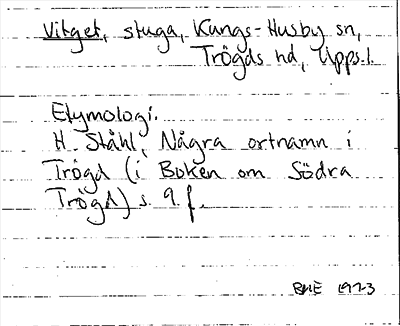 Vitget, stuga, Kungs-Husby sn,
Trögds hd, Upps.l.
Etymologi.
H. Ståhl, Några ortnamn i
Trögd (i Boken om Södra
Trögd) s. 9 f.
1973